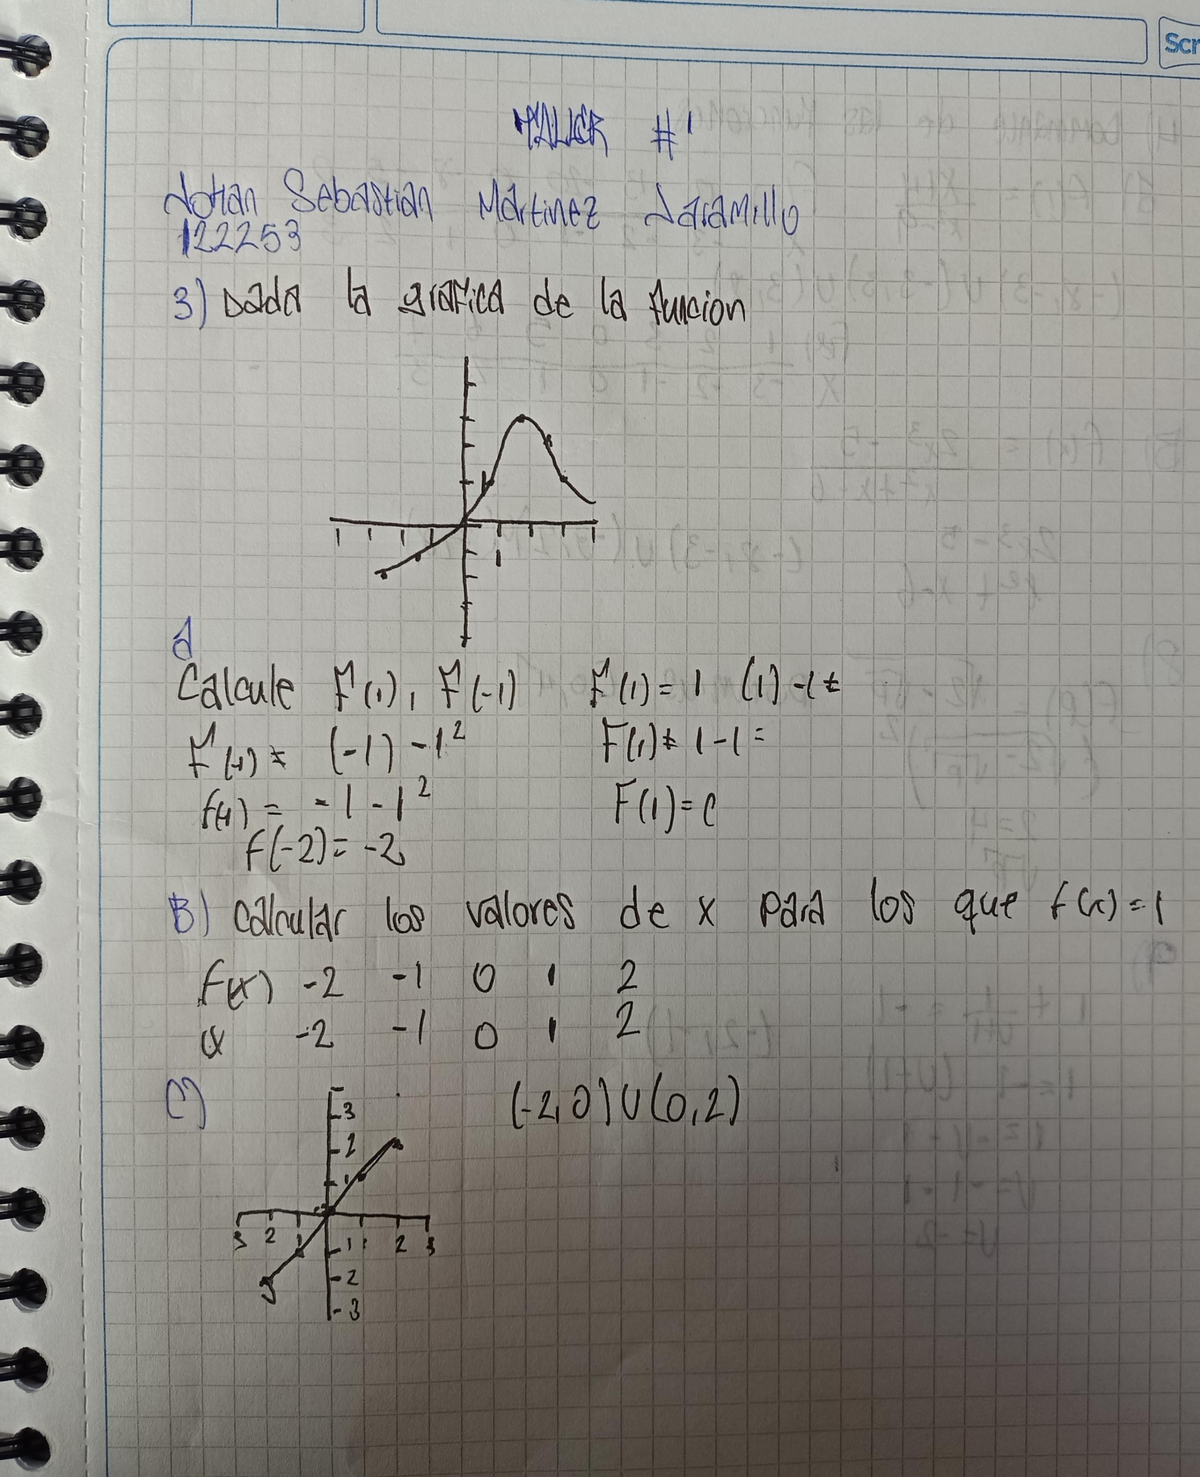 TALLER #1
Johan Sebastian Martinez Jaramillo
122253
3) Dada la grafica de la funcion
1
A
Calcule F(1), F(-1) F(1) = 1 (1) -1 =
F(-1) = (-1) -1² F(1) = 1-1 =
f(-1) = -1 -1² F(1) = 0
f(-2) = -2
B) Calcular los valores de x para los que f(x) = 1
f(x) -2 -1 0 1 2
x -2 -1 0 1 2
C) (-2,0) U (0,2)
3
2
1
3 2 1 1 1 2 3
-2
-3
Scr